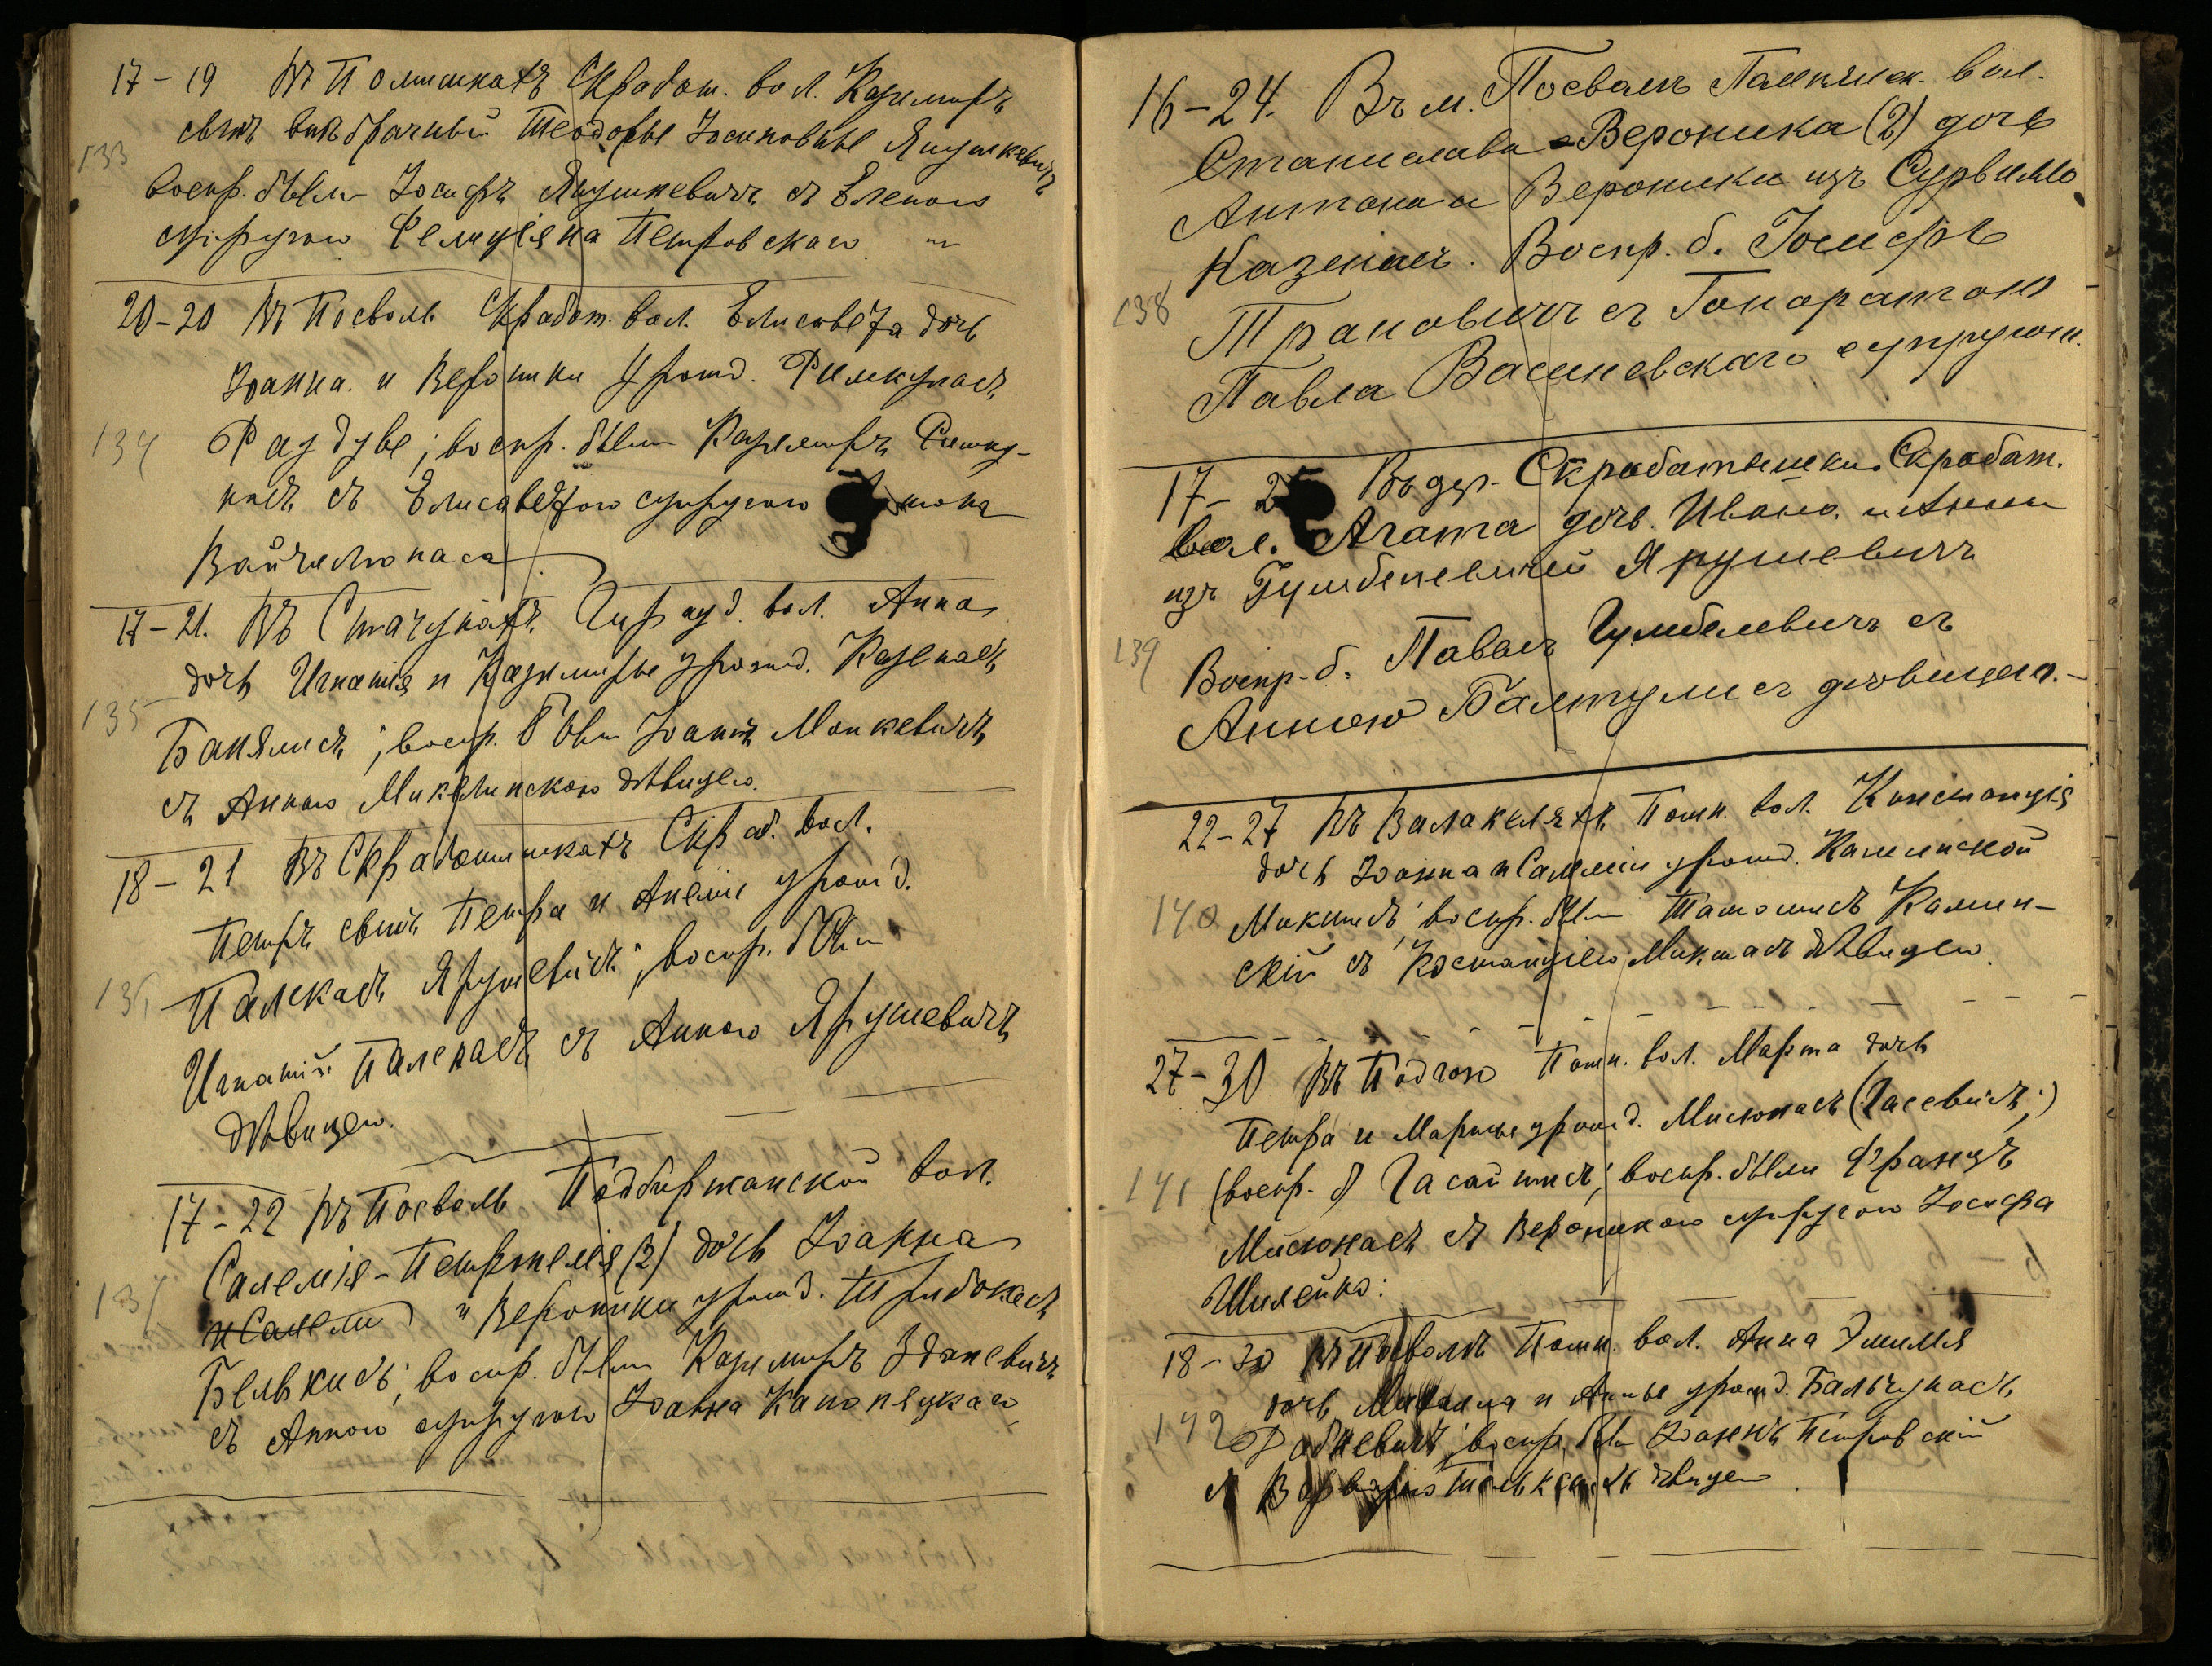 17 – 19 Въ Помишкахъ Скработ. вол. Казимиръ
сынъ внѣбрачный Теодоры Юсиповны Янушкевичъ
133
воспр. были Іосифъ Янушкевичъ съ Еленою
супругою Фелиціяна Петровскаго
20 – 20 Въ Посволь Скработ. вол. Елисавета дочь
Іоанна и Вероники урожд. Римкунасъ
134 Раудуве; воспр. были Казимиръ Римку-
насъ съ Елисаветою супругою
Вайчюлюнаса
17 – 21. Въ Стачунахъ Гирауд. вол. Анна
дочь Игнатія и Казимиры урожд. Казенасъ
135
Банялисъ; воспр. были Іоаннъ Монкевичъ
съ Анною Микелинскою дѣвицею.
18 – 21 Въ Скработишкахъ Скраб. вол.
Петръ сынъ Петра и Анелии урожд.
136 Палекасъ Ярушевичъ; воспр. были
Игнатій Палекасъ съ Анною Ярушевичъ
дѣвицею.
17 – 22 Въ Посволь Подбиржанской вол.
Салемія – Петронелія (2) дочь Іоанна
137
и Салемии и Вероники урожд. Трибокасъ
Белькисъ; воспр. были Казимиръ Зданевичъ
съ Анною супругою Іоанна Канопяцкаго
16 – 24. Въ м. Посволь вол.
Станислава – Вероника (2) дочь
Антона и Вероники изъ Сурвилло
Казенасъ. Воспр. б. Іосифъ
138
Трановичъ съ Гоноратою
Павла Васинсвскаго супругою.
17 – 25 Въ дер. Скработишки Скработ.
вол. Агата дочь Ивана и Анны
изъ Гумбелевичей Ярушевичъ
139
Воспр. б. Павелъ Гумбелевичъ съ
Анною Балтулисъ дѣвицею. –
22 – 27 Въ Валакеляхъ Помп. вол. Констанція
дочь Іоанна и Саломии урожд. Каминской
140 Микшисъ; воспр. были Тамошисъ Камин-
скій съ Костанціею Микшасъ дѣвицею.
27 – 30 Въ Подгою Помп. вол. Марта дочь
Петра и Марыны урожд. Мисюнасъ (Гасевичъ;)
141 (воспр. б) Гасайтисъ; воспр. были Францъ
Мисюнасъ съ Вероникою супругою Іосифа
Шилейко:
18 – 30 Въ Посволь Помп. вол. Анна Эмилія
дочь Михаила и Анны урожд. Бальчунасъ
142
Радкевичъ; воспр. были Іоаннъ Петровскій
съ дѣвицею.